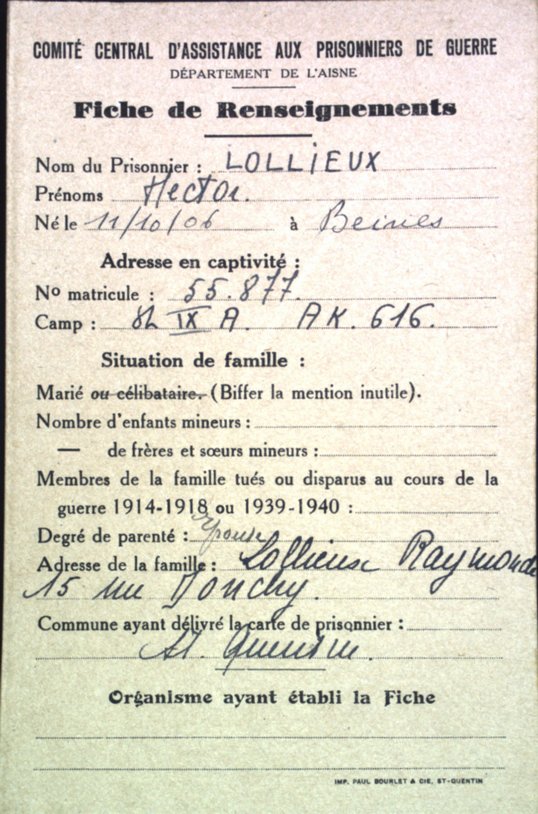 COMITÉ CENTRAL D'ASSISTANCE AUX PRISONNIERS DE GUERRE
DÉPARTEMENT DE L'AISNE
Fiche de Renseignements
Nom du Prisonnier : LOLLIEUX
Prénoms Hector.
Né le 11/10/06 à Beines
Adresse en captivité :
No matricule : 55.877.
Camp : IX A. AK. 616.
Situation de famille :
Marié ou célibataire. (Biffer la mention inutile).
Nombre d'enfants mineurs :
— de frères et sœurs mineurs :
Membres de la famille tués ou disparus au cours de la
guerre 1914-1918 ou 1939-1940 :
Degré de parenté : épouse
Adresse de la famille : Lollieux Raymonde
15 rue Donchy.
Commune ayant délivré la carte de prisonnier :
St. Quentin.
Organisme ayant établi la Fiche
IMP. PAUL BOURLET & CIE, ST-QUENTIN